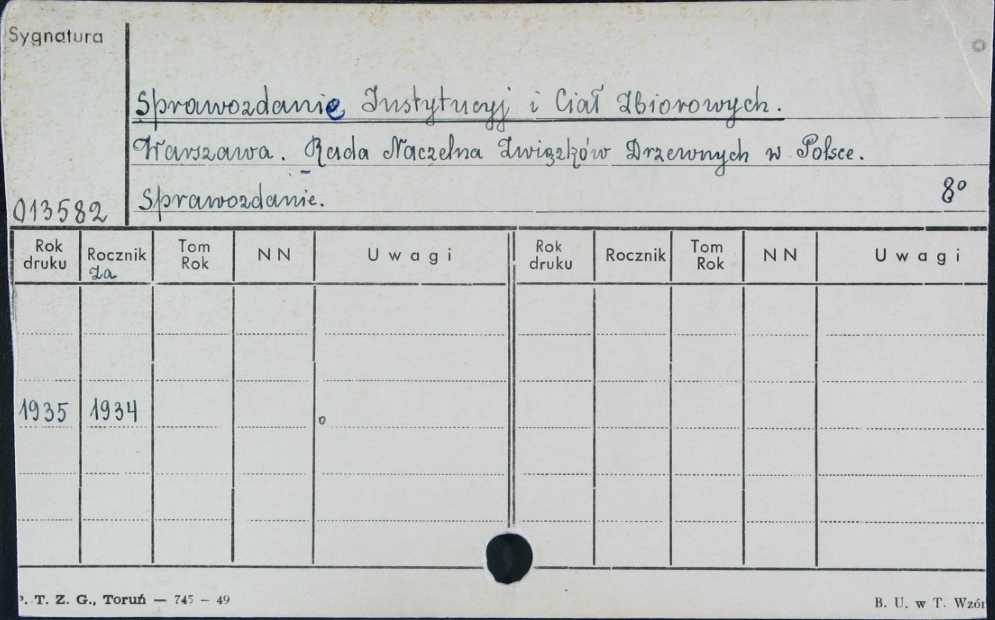 Sygnatura
Sprawozdanie Instytucyj i Ciał Zbiorowych.
Warszawa. Rada Naczelna Związków Drzewnych w Polsce.
Sprawozdanie. 8º
013582
Rok druku Rocznik za Tom Rok NN Uwagi Rok druku Rocznik Tom Rok NN Uwagi
1935 1934
P. T. Z. G., Toruń — 745 — 49 B. U. w T. Wzór